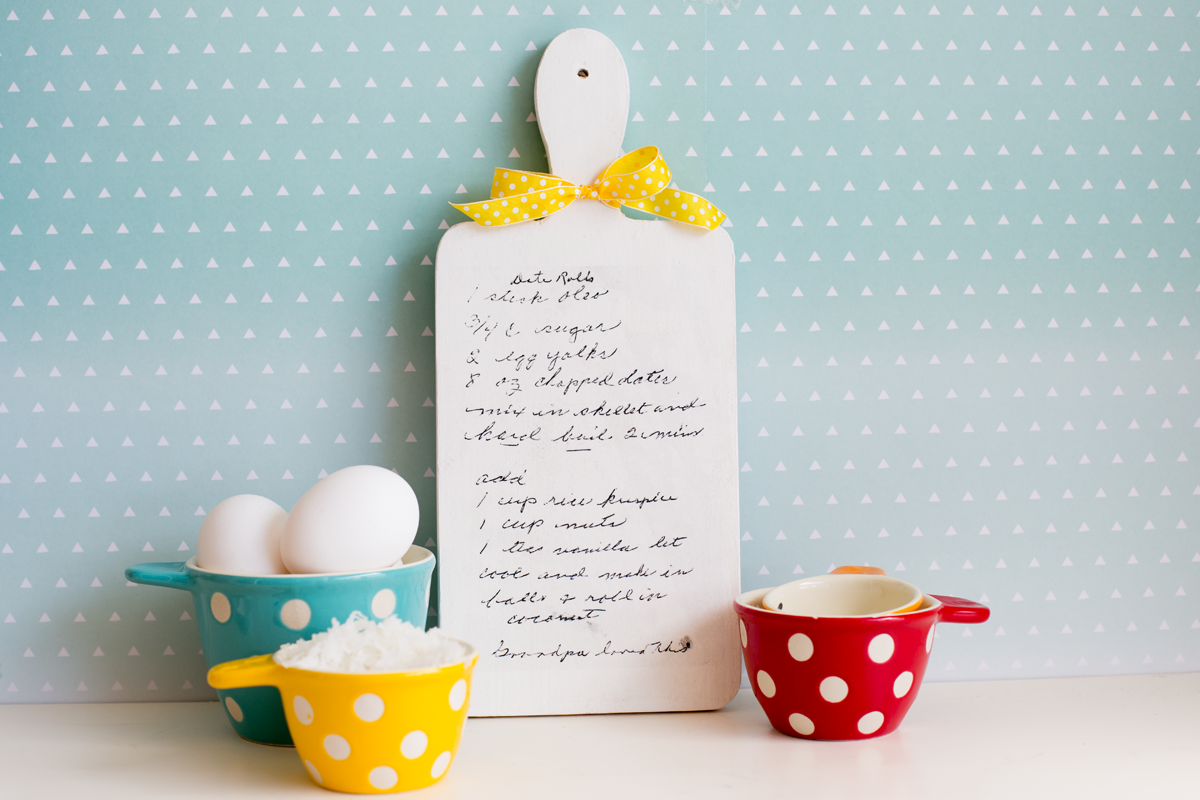 Date Rolls
1 stick oleo
3/4 c sugar
2 egg yolks
8 oz chopped dates
mix in skillet and
hard boil 2 mins
add
1 cup rice krispies
1 cup nuts
1 tea vanilla let
cool and make in
balls & roll in
coconut
Grandpa loved this